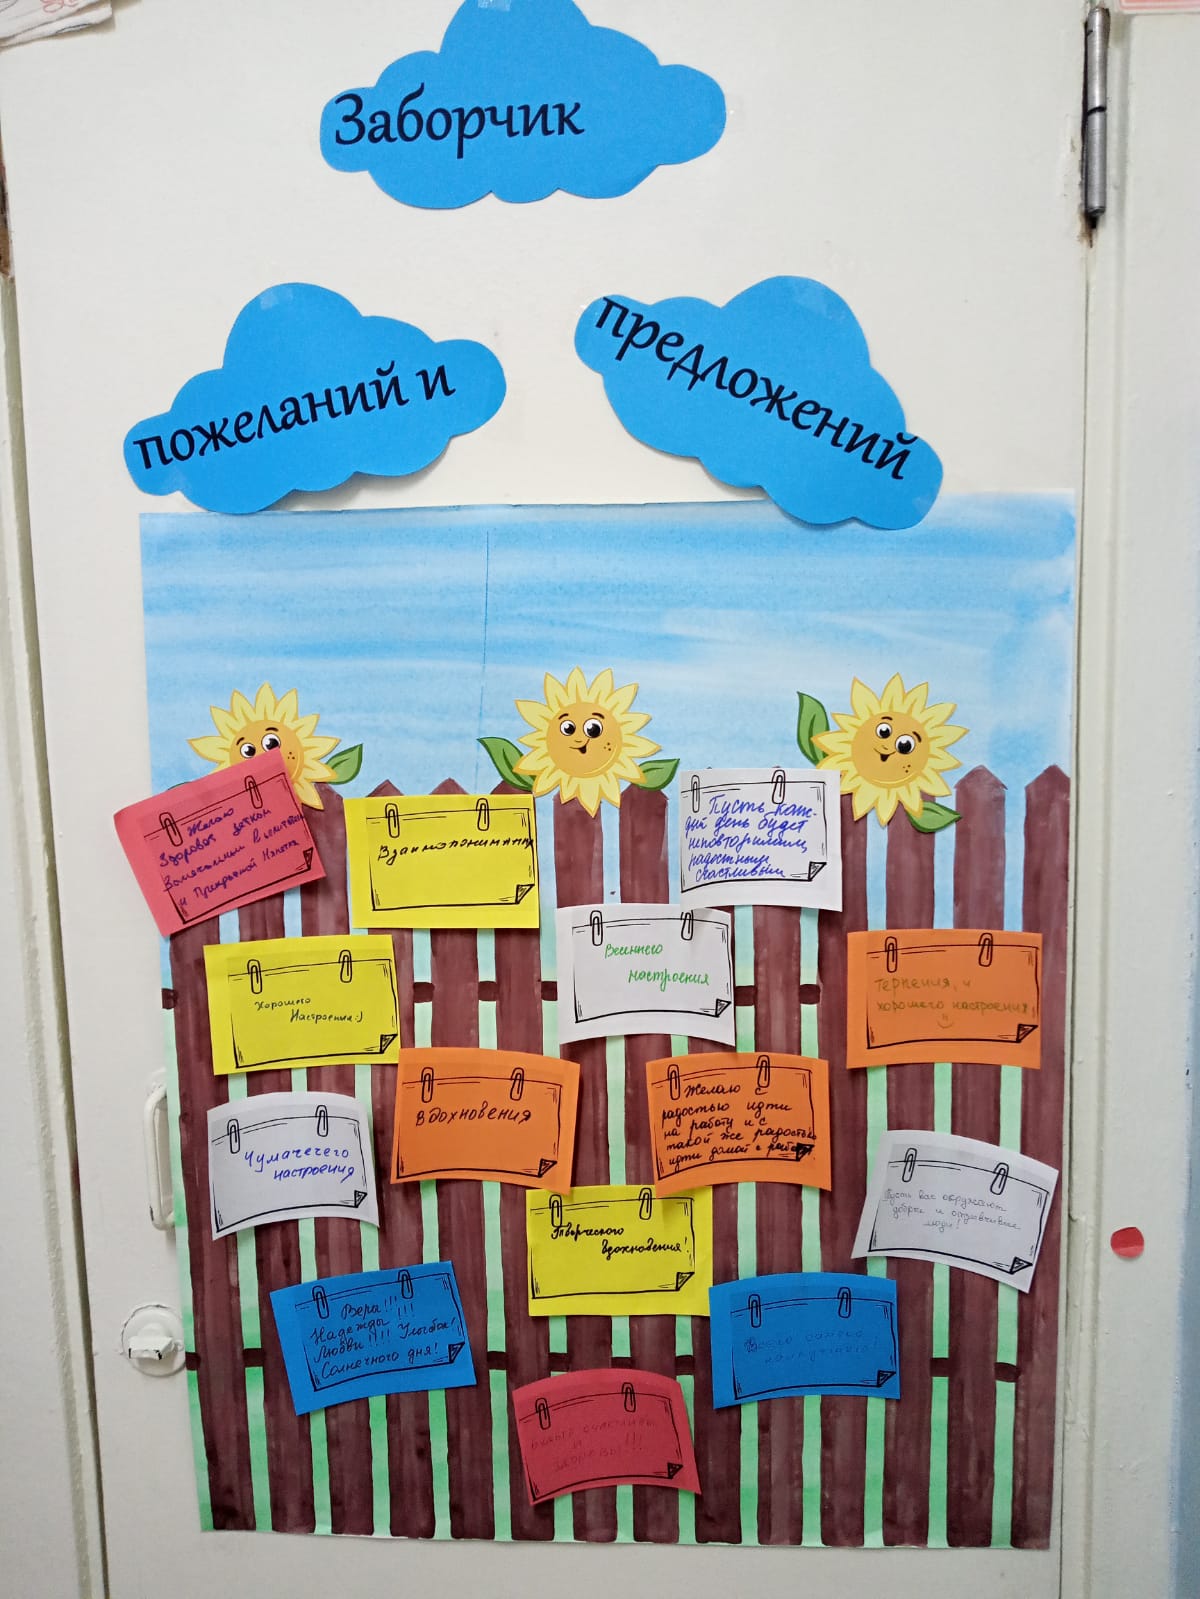 Заборчик
пожеланий и
предложений
Желаю
Здоровья деткам
и Прекрасной
Взаимопонимания
Пусть каж-
дый день будет
неповторимым,
радостным,
счастливым
Хорошего
Настроения:)
Весеннего
настроения
Терпения, и
хорошего настроения
Вдохновения
Желаю с
радостью идти
на работу и с
такой же радостью
идти домой с работы.
Чумачечего
настроения
Пусть вас окружают
добрые и отзывчивые
люди!
Творческого
вдохновения!
Вера!!!
Надежды!!!
Любви!!!! Улыбок!
Солнечного дня!
Всего самого
наилучшего!
Будьте счастливы
и
здоровы!!!